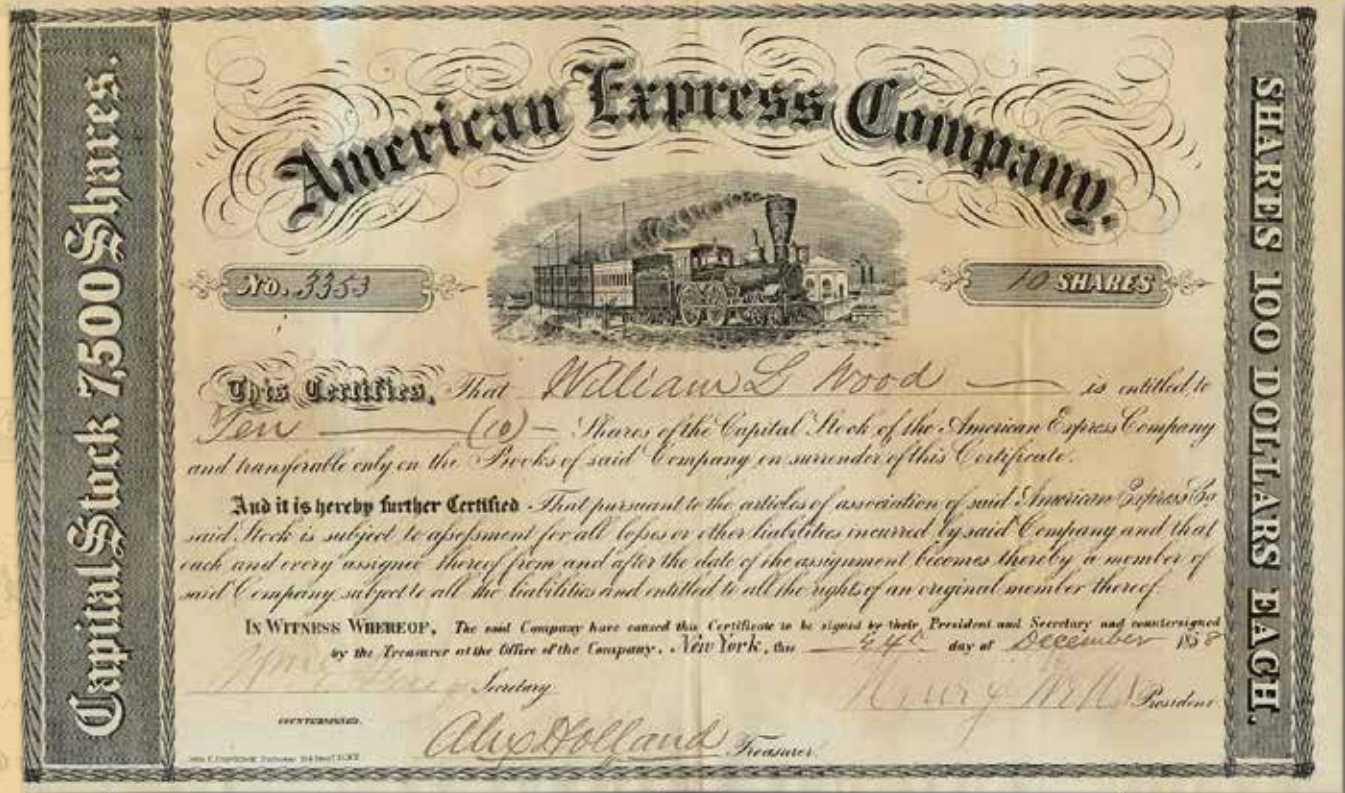 American Express Company.
Capital Stock 7,500 Shares.
SHARES 100 DOLLARS EACH.
No. 3353
10 SHARES
This Certifies, That William L Wood is entitled to
Ten (10) Shares of the Capital Stock of the American Express Company
and transferable only on the Books of said Company on surrender of this Certificate.
And it is hereby further Certified That pursuant to the articles of association of said American Express Co.
said Stock is subject to assessment for all losses or other liabilities incurred by said Company and that
each and every assignee thereof from and after the date of the assignment becomes thereby a member of
said Company, subject to all the liabilities and entitled to all the rights of an original member thereof.
IN WITNESS WHEREOF, The said Company have caused this Certificate to be signed by their President and Secretary and countersigned
by the Treasurer at the Office of the Company, New York, this day of December 1858
Secretary.
Henry Wells President.
COUNTERSIGNED.
Alex Holland Treasurer.